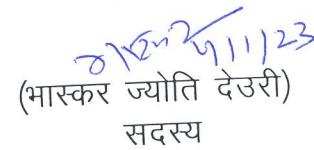 9/11/23
(भास्कर ज्योति देउरी)
सदस्य